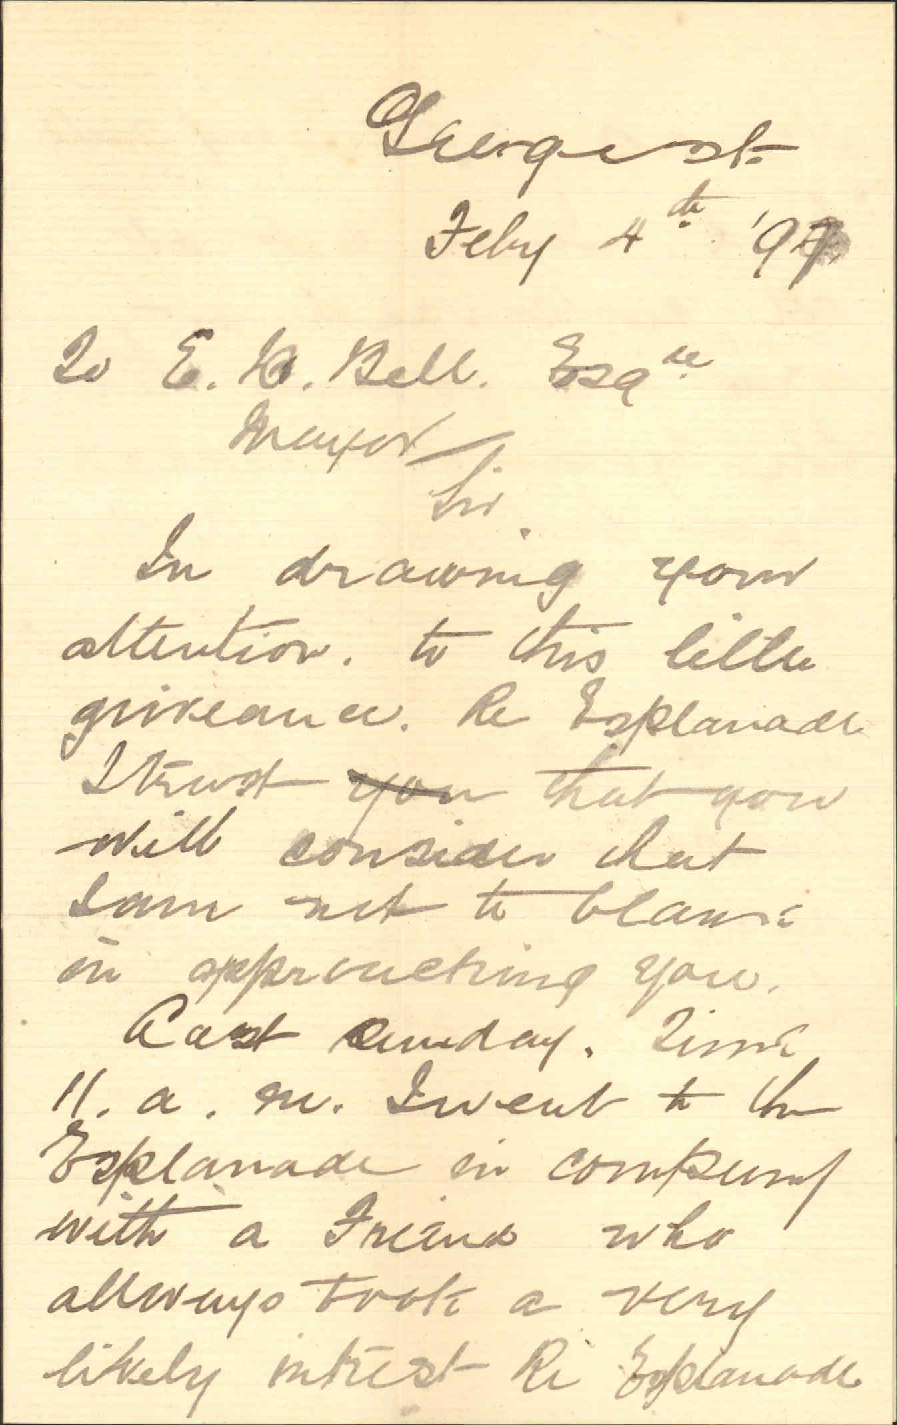 George st.
Feby 4th '97
To E. W. Bell. Esqre
Mayor
Sir.
In drawing your
attention. to this little
griveance. Re Esplanade
I trust you that you
will consider that
I am not to blame
in approaching you.
Last Sunday. Time
11. a. m. I went to the
Esplanade in company
with a Friend who
allways took a very
likely intrest Re Esplanade